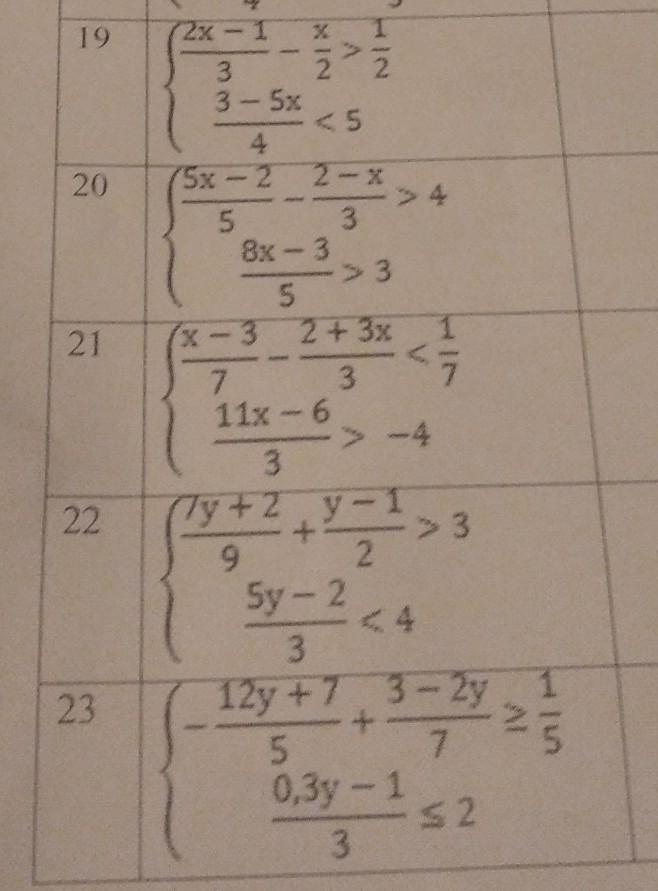 19
(2x − 1)/3 − x/2 > 1/2
(3 − 5x)/4 < 5
20
(5x − 2)/5 − (2 − x)/3 > 4
(8x − 3)/5 > 3
21
(x − 3)/7 − (2 + 3x)/3 < 1/7
(11x − 6)/3 > −4
22
(7y + 2)/9 + (y − 1)/2 > 3
(5y − 2)/3 < 4
23
−(12y + 7)/5 + (3 − 2y)/7 ≥ 1/5
(0,3y − 1)/3 ≤ 2